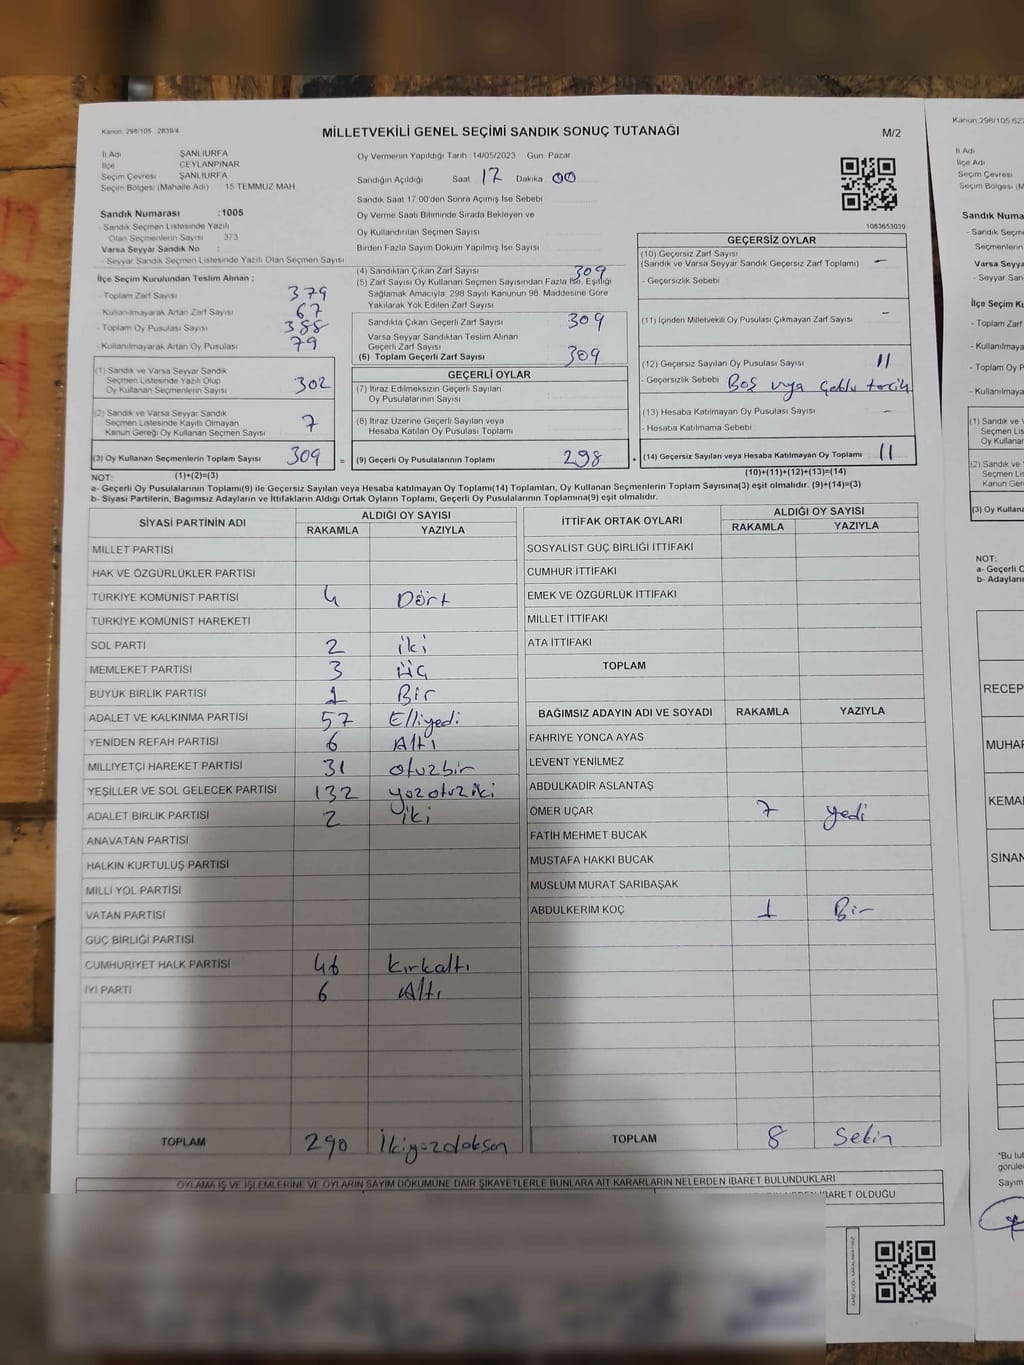 Kanun: 298/105 2839/4
MİLLETVEKİLİ GENEL SEÇİMİ SANDIK SONUÇ TUTANAĞI
M/2
İl Adı ŞANLIURFA
İlçe CEYLANPINAR
Seçim Çevresi ŞANLIURFA
Seçim Bölgesi (Mahalle Adı) 15 TEMMUZ MAH
Oy Vermenin Yapıldığı Tarih 14/05/2023 Gün: Pazar
Sandığın Açıldığı Saat 17 Dakika 00
Sandık Saat 17:00'den Sonra Açımış İse Sebebi
Oy Verme Saati Bitiminde Sırada Bekleyen ve
Oy Kullandırılan Seçmen Sayısı
Birden Fazla Sayım Döküm Yapılmış İse Sayısı
1083653039
Sandık Numarası :1005
- Sandık Seçmen Listesinde Yazılı
Olan Seçmenlerin Sayısı 373
Varsa Seyyar Sandık No :
- Seyyar Sandık Seçmen Listesinde Yazılı Olan Seçmen Sayısı
İlçe Seçim Kurulundan Teslim Alınan ;
- Toplam Zarf Sayısı 379
- Kullanılmayarak Artan Zarf Sayısı 67
- Toplam Oy Pusulası Sayısı 388
- Kullanılmayarak Artan Oy Pusulası 79
(1) Sandık ve Varsa Seyyar Sandık
Seçmen Listesinde Yazılı Olup
Oy Kullanan Seçmenlerin Sayısı 302
(2) Sandık ve Varsa Seyyar Sandık
Seçmen Listesinde Kayıtlı Olmayan
Kanun Gereği Oy Kullanan Seçmen Sayısı 7
(3) Oy Kullanan Seçmenlerin Toplam Sayısı 309 =
(4) Sandıktan Çıkan Zarf Sayısı 309
(5) Zarf Sayısı Oy Kullanan Seçmen Sayısından Fazla İse, Eşitliği
Sağlamak Amacıyla, 298 Sayılı Kanunun 98. Maddesine Göre
Yakılarak Yok Edilen Zarf Sayısı
Sandıkta Çıkan Geçerli Zarf Sayısı 309
Varsa Seyyar Sandıktan Teslim Alınan
Geçerli Zarf Sayısı
(6) Toplam Geçerli Zarf Sayısı 309
GEÇERLİ OYLAR
(7) İtiraz Edilmeksizin Geçerli Sayılan
Oy Pusulalarının Sayısı
(8) İtiraz Üzerine Geçerli Sayılan veya
Hesaba Katılan Oy Pusulası Toplamı
(9) Geçerli Oy Pusulalarının Toplamı 298 +
GEÇERSİZ OYLAR
(10) Geçersiz Zarf Sayısı
(Sandık ve Varsa Seyyar Sandık Geçersiz Zarf Toplamı) -
- Geçersizlik Sebebi
(11) İçinden Milletvekili Oy Pusulası Çıkmayan Zarf Sayısı -
(12) Geçersiz Sayılan Oy Pusulası Sayısı 11
- Geçersizlik Sebebi Boş veya Çoklu tercih
(13) Hesaba Katılmayan Oy Pusulası Sayısı -
- Hesaba Katılmama Sebebi
(14) Geçersiz Sayılan veya Hesaba Katılmayan Oy Toplamı 11
NOT: (1)+(2)=(3)
(10)+(11)+(12)+(13)=(14)
a- Geçerli Oy Pusulalarının Toplamı(9) ile Geçersiz Sayılan veya Hesaba katılmayan Oy Pusulası(14) Toplamları, Oy Kullanan Seçmenlerin Toplam Sayısına(3) eşit olmalıdır. (9)+(14)=(3)
b- Siyasi Partilerin, Bağımsız Adayların ve İttifakların Aldığı Ortak Oyların Toplamı, Geçerli Oy Pusulalarının Toplamına(9) eşit olmalıdır.
SİYASİ PARTİNİN ADI
ALDIĞI OY SAYISI
RAKAMLA YAZIYLA
MİLLET PARTİSİ
HAK VE ÖZGÜRLÜKLER PARTİSİ
TÜRKİYE KOMÜNİST PARTİSİ 4 Dört
TÜRKİYE KOMÜNİST HAREKETİ
SOL PARTİ 2 iki
MEMLEKET PARTİSİ 3 üç
BÜYÜK BİRLİK PARTİSİ 1 Bir
ADALET VE KALKINMA PARTİSİ 57 Elliyedi
YENİDEN REFAH PARTİSİ 6 Altı
MİLLİYETÇİ HAREKET PARTİSİ 31 otuzbir
YEŞİLLER VE SOL GELECEK PARTİSİ 132 yüzotuziki
ADALET BİRLİK PARTİSİ 2 iki
ANAVATAN PARTİSİ
HALKIN KURTULUŞ PARTİSİ
MİLLİ YOL PARTİSİ
VATAN PARTİSİ
GÜÇ BİRLİĞİ PARTİSİ
CUMHURİYET HALK PARTİSİ 46 kırkaltı
İYİ PARTİ 6 Altı
TOPLAM 290 İkiyüzdoksan
İTTİFAK ORTAK OYLARI
ALDIĞI OY SAYISI
RAKAMLA YAZIYLA
SOSYALİST GÜÇ BİRLİĞİ İTTİFAKI
CUMHUR İTTİFAKI
EMEK VE ÖZGÜRLÜK İTTİFAKI
MİLLET İTTİFAKI
ATA İTTİFAKI
TOPLAM
BAĞIMSIZ ADAYIN ADI VE SOYADI RAKAMLA YAZIYLA
FAHRİYE YONCA AYAS
LEVENT YENİLMEZ
ABDULKADİR ASLANTAŞ
ÖMER UÇAR 7 yedi
FATİH MEHMET BUCAK
MUSTAFA HAKKI BUCAK
MÜSLÜM MURAT SARIBAŞAK
ABDULKERİM KOÇ 1 Bir
TOPLAM 8 Sekiz
OYLAMA İŞ VE İŞLEMLERİNE VE OYLARIN SAYIM DÖKÜMÜNE DAİR ŞİKAYETLERLE BUNLARA AİT KARARLARIN NELERDEN İBARET BULUNDUKLARI
İBARET OLDUĞU
Kanun:298/105 627
İl Adı
İlçe Adı
Seçim Çevresi
Sandık Numa
- Sandık Seçme
Seçmenlerin
Varsa Seyyar
- Seyyar San
İlçe Seçim
- Toplam Zarf
- Kullanılmaya
- Toplam Oy P
- Kullanılmaya
(1) Sandık ve V
Seçmen Lis
Oy Kullana
(3) Oy Kullana
NOT:
a- Geçerli O
b- Adayların
RECEP
MUHAR
KEMAL
SİNAN
*Bu tut
görüle
Sayım